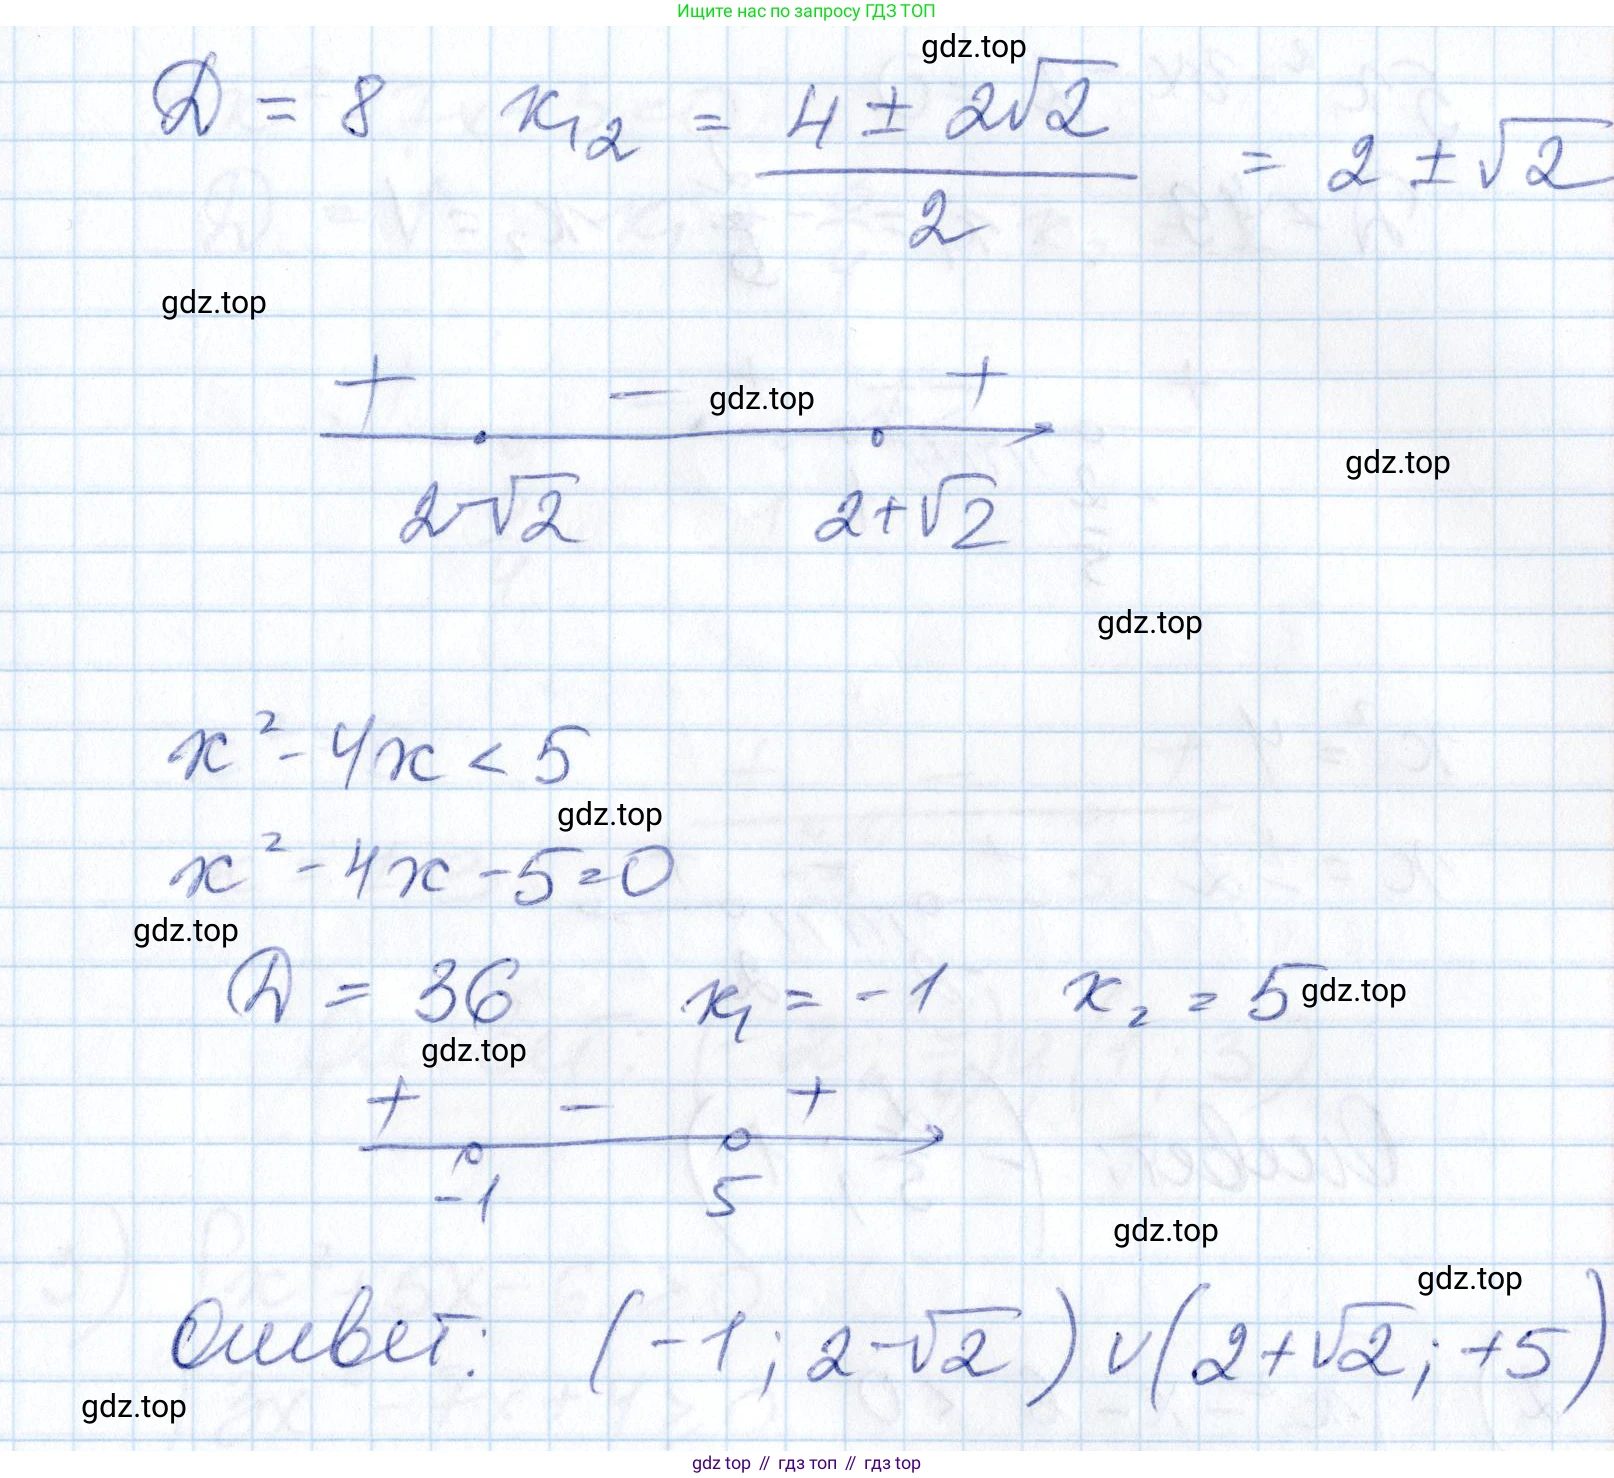 Ищите нас по запросу ГДЗ ТОП
gdz.top
D = 8 x₁₂ = (4 ± 2√2)/2 = 2 ± √2
gdz.top
+ − gdz.top +
gdz.top
2-√2 2+√2
gdz.top
x² - 4x < 5
gdz.top
x² - 4x - 5 = 0
gdz.top
D = 36 x₁ = -1 x₂ = 5 gdz.top
gdz.top
+ − +
-1 5
gdz.top
gdz.top
Ответ: (-1; 2-√2) ∪ (2+√2; +5)
gdz.top
gdz top // гдз топ // gdz top